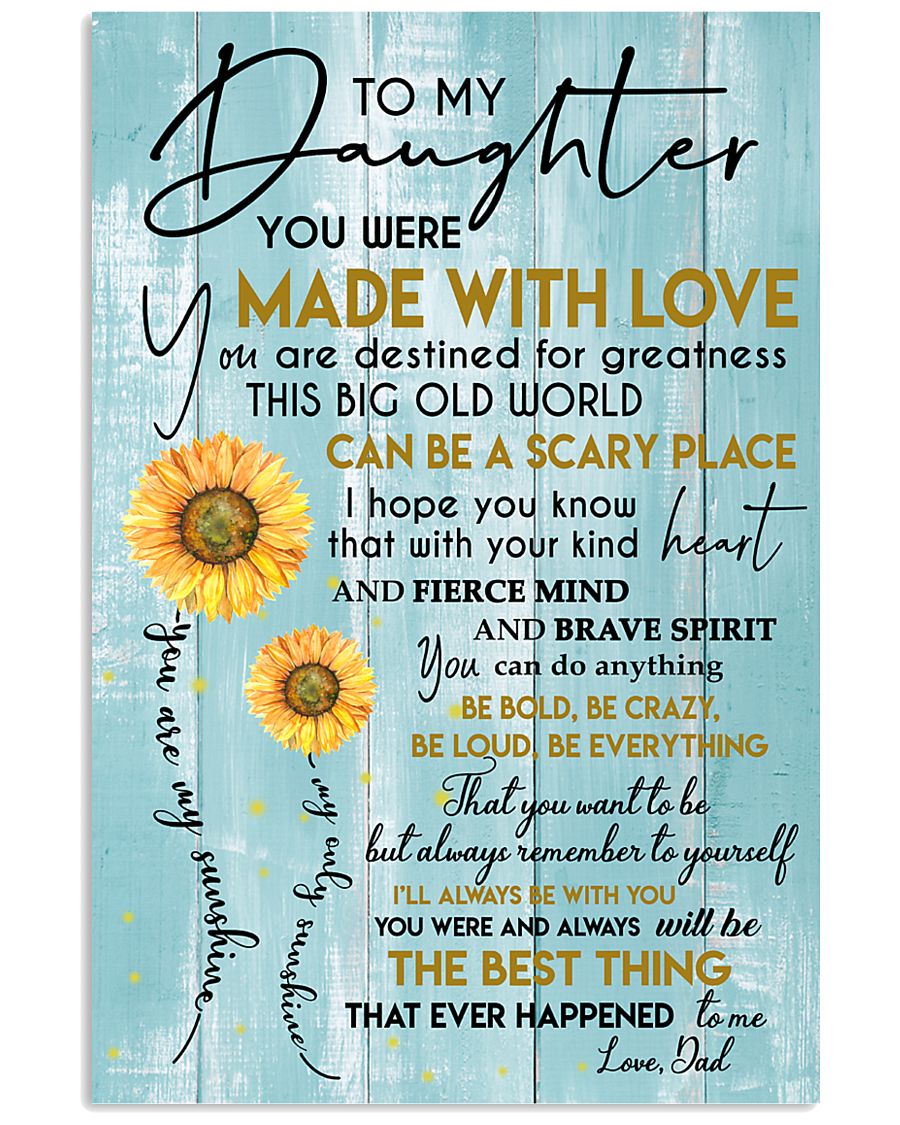 TO MY
Daughter
YOU WERE
MADE WITH LOVE
You are destined for greatness
THIS BIG OLD WORLD
CAN BE A SCARY PLACE
I hope you know
that with your kind heart
AND FIERCE MIND
AND BRAVE SPIRIT
You can do anything
BE BOLD, BE CRAZY,
BE LOUD, BE EVERYTHING
That you want to be
but always remember to yourself
I'LL ALWAYS BE WITH YOU
YOU WERE AND ALWAYS will be
THE BEST THING
THAT EVER HAPPENED to me
Love, Dad
you are my sunshine
my only sunshine